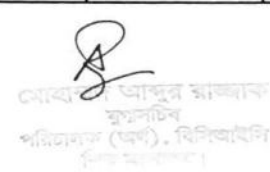 মোহাম্মদ আব্দুর রাজ্জাক
যুগ্মসচিব
পরিচালক (অর্থ), বিসিআইসি